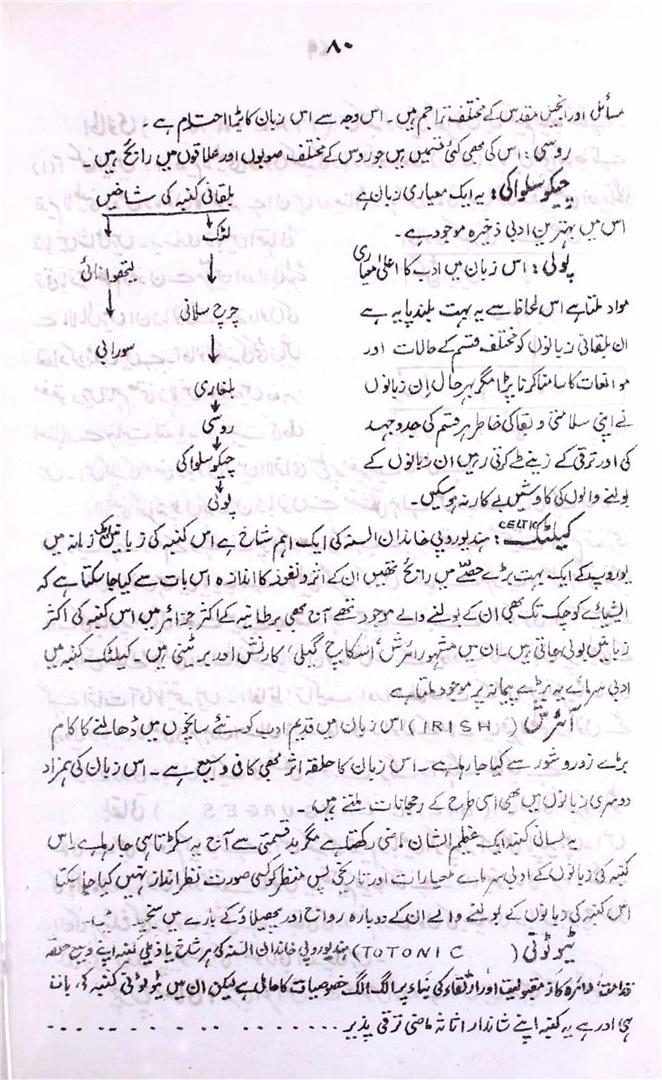 ۸۰
مسائل اور انجیل مقدس کے مختلف تراجم ہیں۔ اس وجہ سے اس زبان کا بڑا احترام ہے۔
روسی: اس کی بھی کئی قسمیں ہیں جو روس کے مختلف صوبوں اور علاقوں میں رائج ہیں۔
چیکوسلواکی: یہ ایک معیاری زبان ہے
اس میں بہترین ادبی ذخیرہ موجود ہے۔
پولی: اس زبان میں ادب کا اعلیٰ معیاری
مواد ملتا ہے اس لحاظ سے یہ بہت بلند پایہ ہے
ان بلقانی زبانوں کو مختلف قسم کے حالات اور
واقعات کا سامنا کرنا پڑا مگر بہر حال ان زبانوں
نے اپنی سلامتی و بقا کی خاطر ہر قسم کی جدوجہد
کی اور ترقی کے زینے طے کرتی رہیں ان زبانوں کے
بولنے والوں کی کاوشیں بے کار نہ ہوسکیں۔
بلقانی کنبہ کی شاخیں
لٹک
چرچ سلانی
بلغاری
روسی
چیکوسلواکی
پولی
لیتھوانائی
سورابی
کیلٹک CELTIC: ہند یوروپی خاندان السنہ کی ایک اہم شاخ ہے اس کنبہ کی زبانیں زمانہ میں
یوروپ کے ایک بہت بڑے حصے میں رائج تھیں ان کے اثر و نفوذ کا اندازہ اس بات سے کیا جاسکتا ہے کہ
ایشیائے کوچک تک بھی ان کے بولنے والے موجود تھے آج بھی برطانیہ کے اکثر جزائر میں اس کنبہ کی اکثر
زبانیں بولی جاتی ہیں۔ ان میں مشہور ائرش، اسکاچ گیلی، کارنش اور برٹنی ہیں۔ کیلٹک کنبہ میں
ادبی سرمایہ بڑے پیمانہ پر موجود ملتا ہے
آئرش (IRISH) اس زبان میں قدیم ادب کو نئے سانچوں میں ڈھالنے کا کام
بڑے زور و شور سے کیا جارہا ہے۔ اس زبان کا حلقہ اثر بھی کافی وسیع ہے۔ اس زبان کی ہمزاد
دوسری زبانوں میں بھی اسی طرح کے رجحانات ملتے ہیں۔
یہ لسانی کنبہ ایک عظیم الشان ماضی رکھتا ہے مگر بدقسمتی سے آج یہ سکڑتا ہی جارہا ہے اس
کنبہ کی زبانوں کے ادبی سرمایے معیارات اور تاریخی پس منظر کو کسی صورت نظر انداز نہیں کیا جاسکتا
اس کنبہ کی زبانوں کے بولنے والے ان کے دوبارہ رواج اور پھیلاؤ کے بارے میں
ٹیوٹونی (TOTONIC) ہند یوروپی خاندانی السنہ کی ہر شاخ یا ذیلی کنبہ اپنے وسیع حلقہ
مقبولیت اور ارتقاء کی بناء پر الگ الگ خصوصیات کا حامل ہے لیکن ان میں ٹیوٹونی کنبہ کی بات
ہی اور ہے یہ کنبہ اپنے شاندار اثاثہ ماضی ترقی پذیر